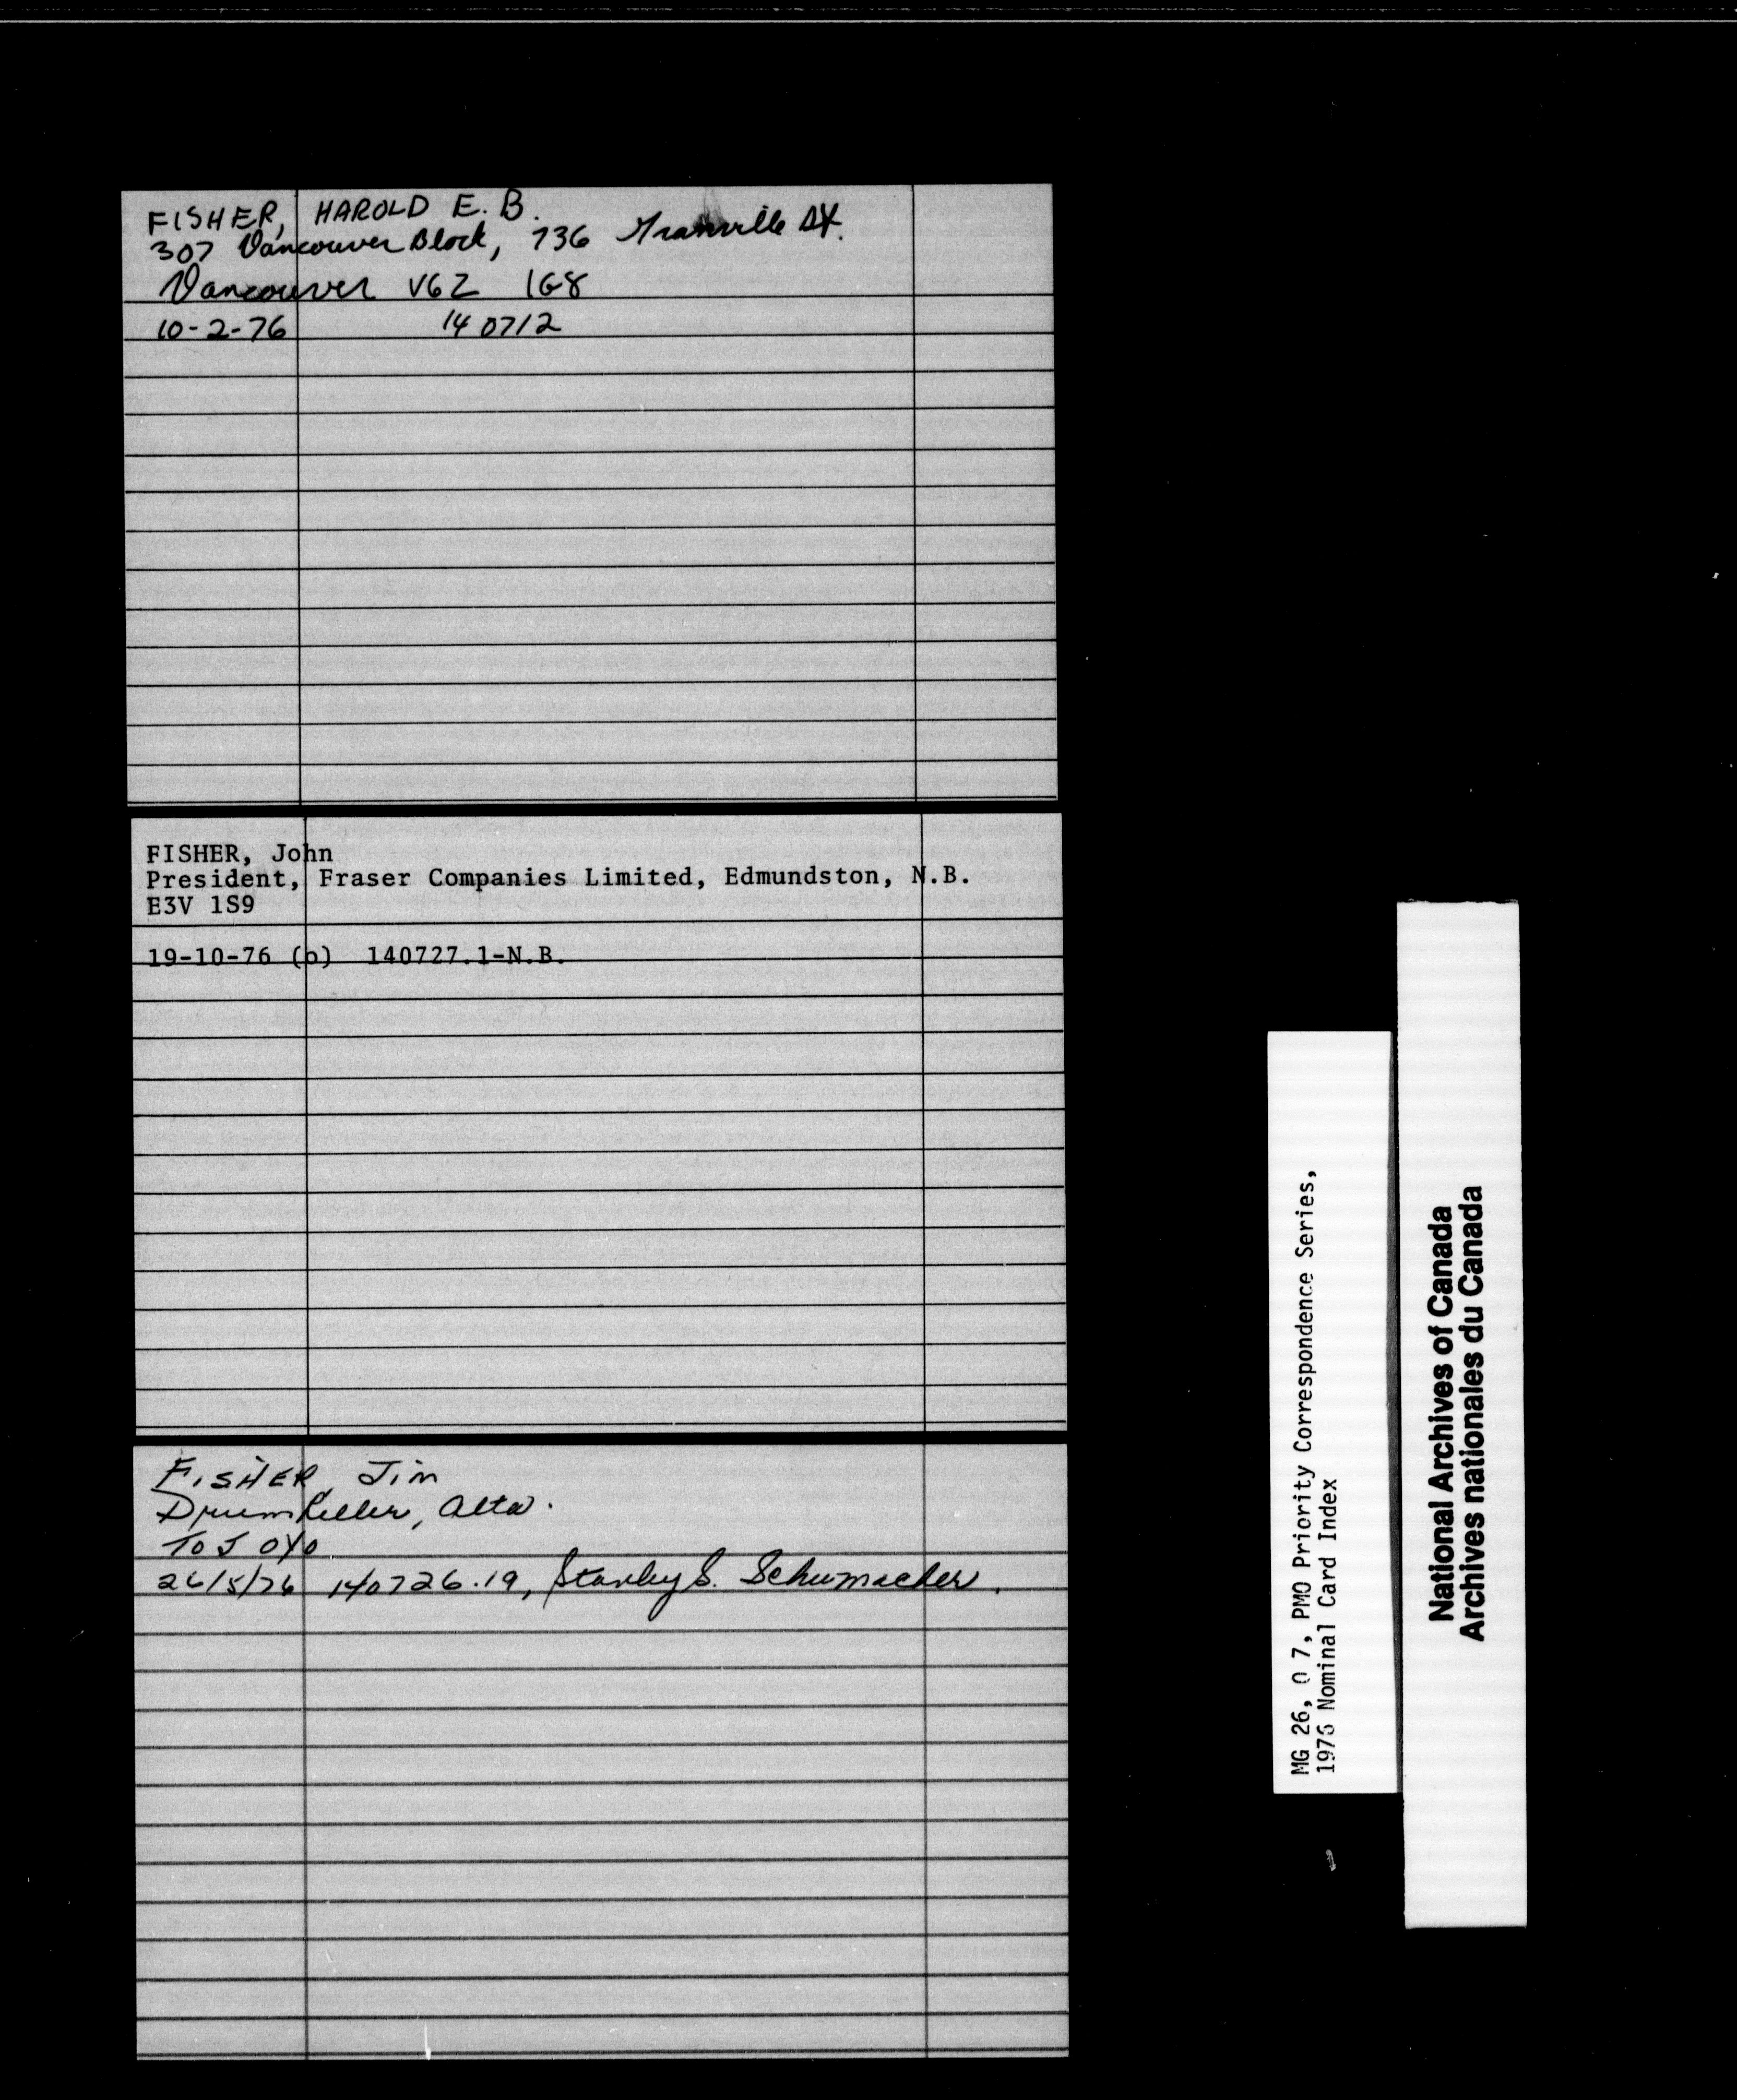 FISHER, HAROLD E. B.
307 Vancouver Block, 736 Granville St.
Vancouver V6Z 1G8
10-2-76 140712
FISHER, John
President, Fraser Companies Limited, Edmundston, N.B.
E3V 1S9
19-10-76 (o) 140727.1-N.B.
FISHER, Jim
Drumheller, Alta.
T0J 0Y0
26/5/76 140726.19, Stanley S. Schumacher.
MG 26, O 7, PMO Priority Correspondence Series,
1976 Nominal Card Index
National Archives of Canada
Archives nationales du Canada